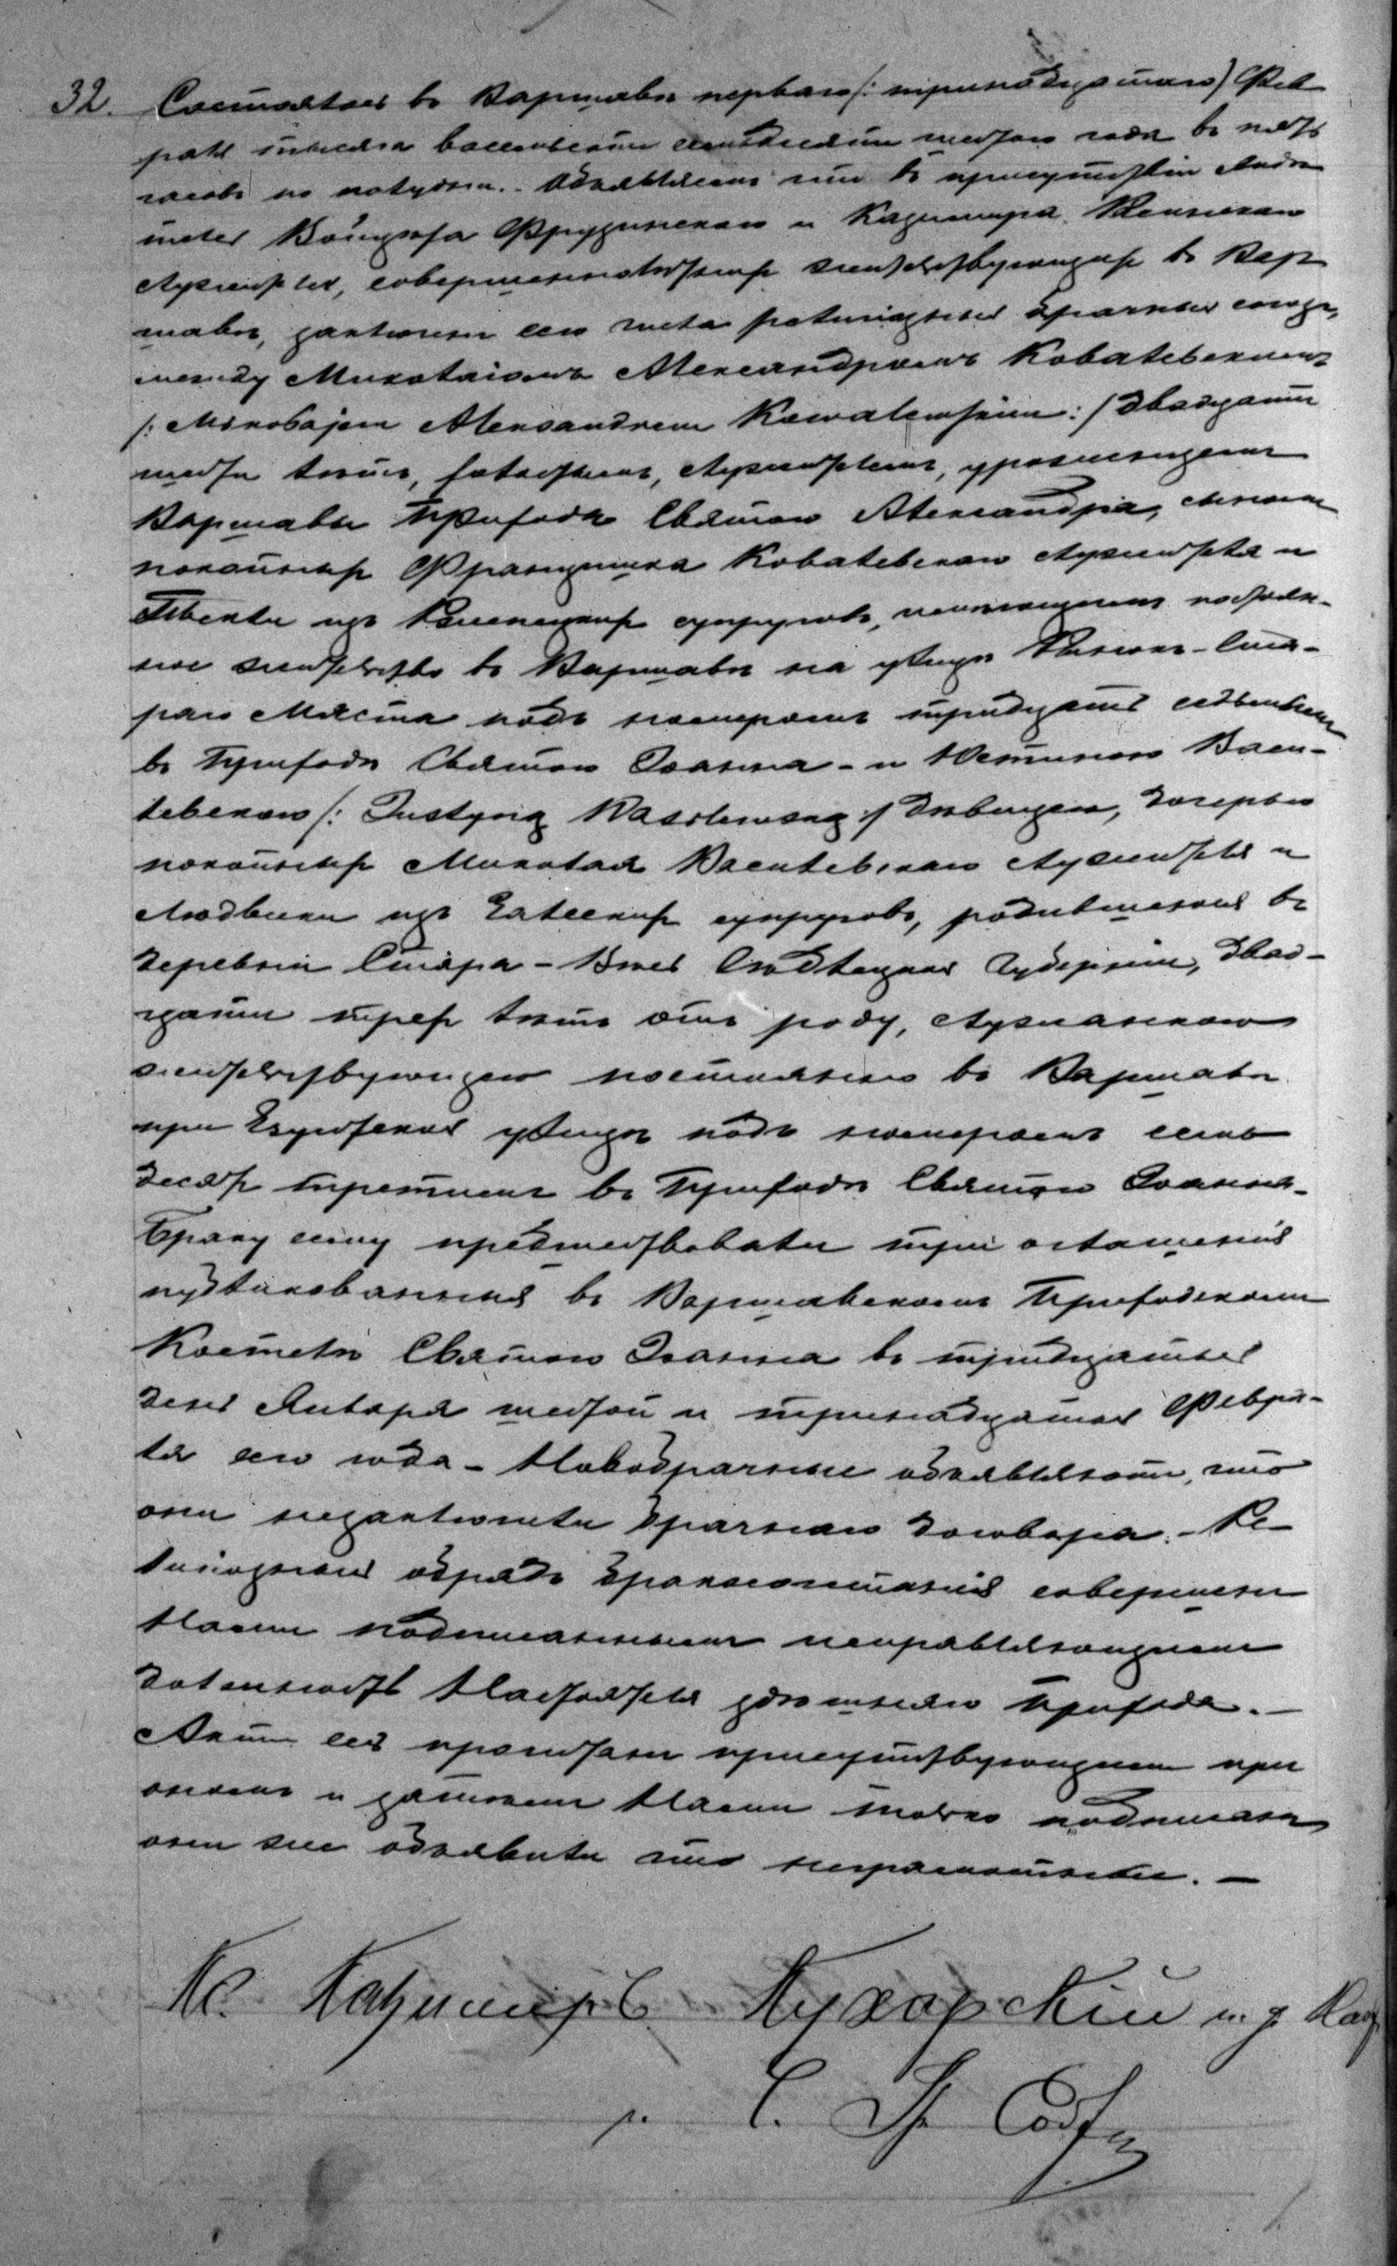 32. Состоялось въ Варшавѣ перваго /: тринадцатаго) Фев
раля тысяча восемьсотъ семьдесятъ шестого года въ пять
часовъ по полудни. Объявляемъ что въ присутствіи свидѣ
телей Войцѣха и Казимира
служителей, совершеннолѣтнихъ жительствующихъ въ Вар
шавѣ, заключенъ сего числа религіозный брачный союзъ,
между Миколаіомъ Александромъ Ковалевскимъ
/: Mikołajem Alexandrem Kowalewskim :/ двадцати
шести лѣтъ, холостымъ, служителемъ, уроженцемъ
Варшавы Прихода Святаго Александра, сыномъ
покойныхъ Францишка Ковалевскаго служителя и
Теклы изъ супруговъ, имѣющимъ постоян-
ное жительство въ Варшавѣ на улицѣ Рынокъ-Ста-
раго Мяста подъ номеромъ тридцать седьмымъ
въ Приходѣ Святаго Іоанна - и Юстиною Васи-
левскою /: Justyną Wasilewską :/ дѣвицею, дочерью
покойныхъ Миколая Василевскаго служителя и
Людвики изъ супруговъ, родившеюся въ
деревни Стара-Весь Сѣдлецкой Губерніи, двад-
цати трехъ лѣтъ отъ роду, служанкою
жительствующею постоянно въ Варшавѣ
при Езуитской улицѣ подъ номеромъ семь
десятъ третьимъ въ Приходѣ Святаго Іоанна.
Браку сему предшествовали три оглашенія
публикованныя въ Варшавскомъ Приходскомъ
Костелѣ Святаго Іоанна въ тридцатый
день Января шестой и тринадцатый Февра-
ля сего года - Новобрачные объявляютъ, что
они незаключили брачнаго договора. - Ре-
лигіозный обрядъ бракосочетанія совершенъ
Нами подписавшимъ исправляющимъ
должность Настоятеля здѣшняго Прихода. —
Актъ сей прочитанъ присутствующимъ при
ономъ и затѣмъ Нами только подписанъ
они же объявили что неграмотные. —
Кс. Казимиръ Кухарскій и. д. Нас
С. Гр. Сост